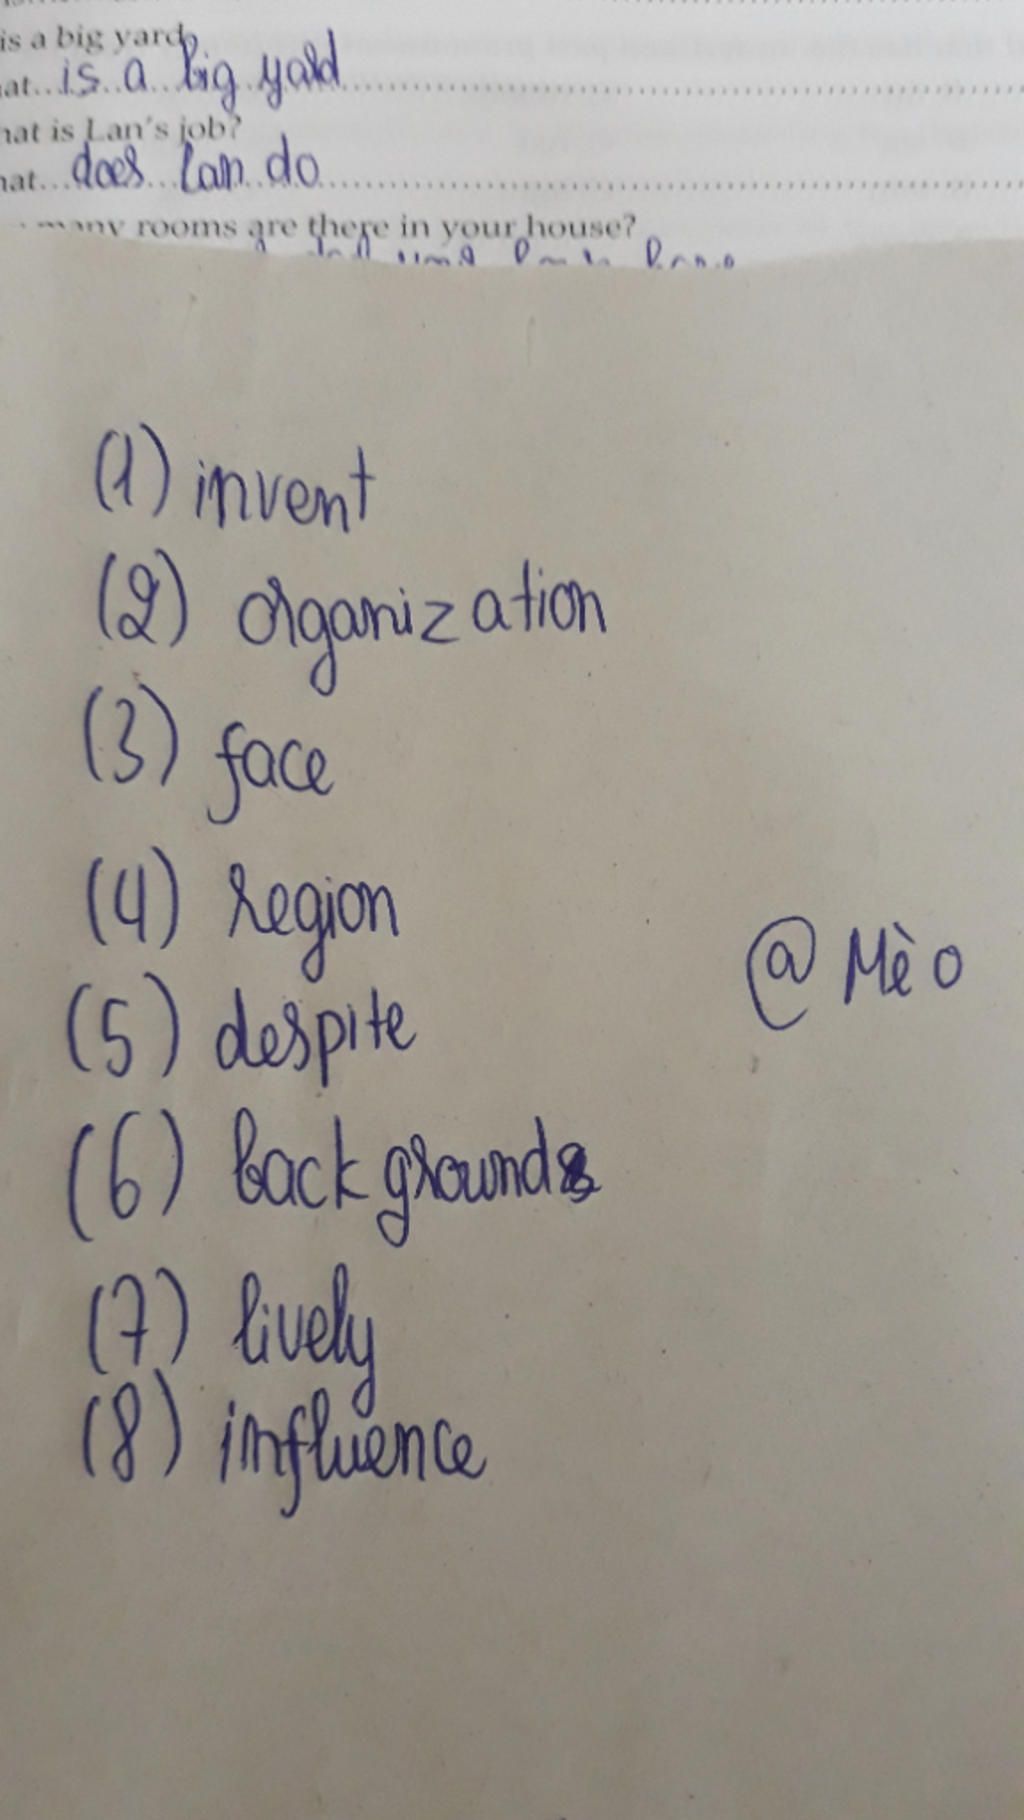 is a big yard
at...is a big yard
hat is Lan's job?
hat...does Lan do
many rooms are there in your house?
(1) invent
(2) organization
(3) face
(4) region
@ Mèo
(5) despite
(6) backgrounds
(7) lively
(8) influence